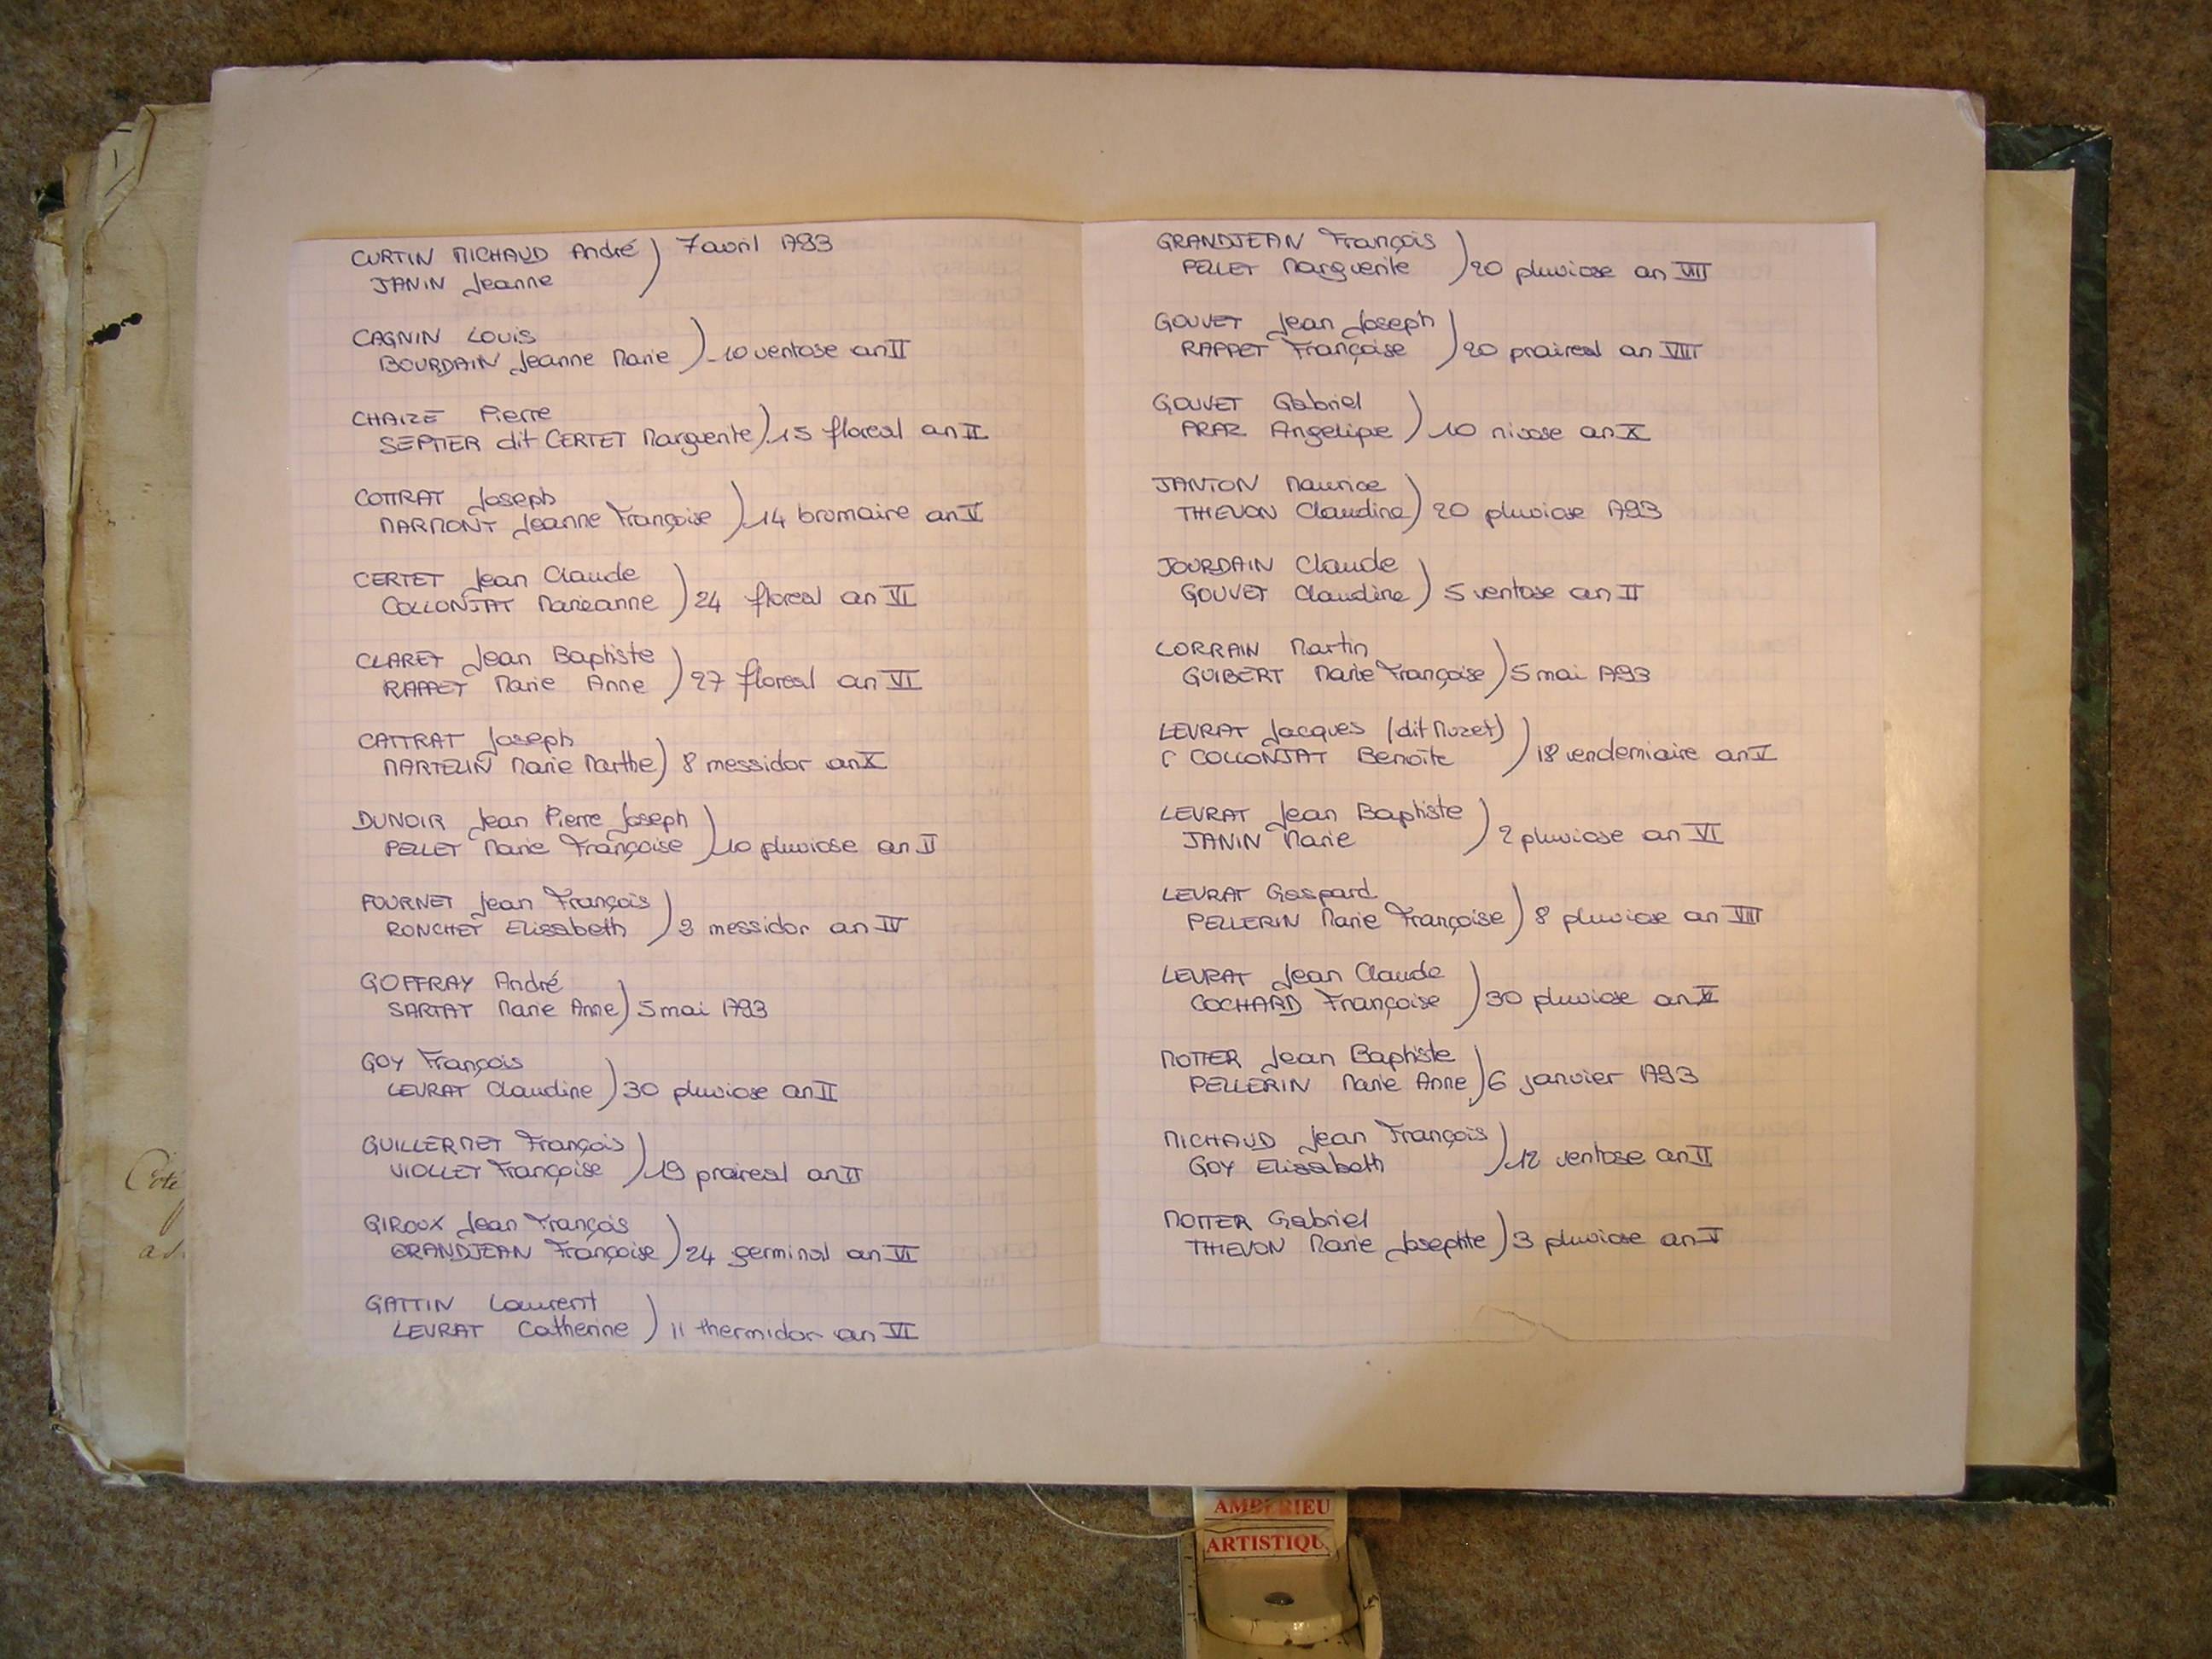 CURTIN MICHAUD André ) 7 avril 1793
JANIN Jeanne
CAGNIN Louis
BOURDAIN Jeanne Marie ) 10 ventose an II
CHAIZE Pierre
SEPTIER dit CERTET Marguerite ) 15 floreal an II
COTTRAT Joseph
MARMONT Jeanne Françoise ) 14 brumaire an V
CERTET Jean Claude
COLLONJAT Marieanne ) 24 floreal an VI
CLARET Jean Baptiste
RAPPET Marie Anne ) 27 floreal an VI
CATTRAT Joseph
MARTELIN Marie Marthe ) 8 messidor an X
DUNOIR Jean Pierre Joseph
PELLET Marie Françoise ) 10 pluviose an II
FOURNET Jean François
RONCHET Elisabeth ) 2 messidor an IV
GOFFRAY André
SARTAT Marie Anne ) 5 mai 1793
GOY François
LEVRAT Claudine ) 30 pluviose an II
GUILLERMET François
VIOLLET Françoise ) 19 praireal an II
GIROUX Jean François
GRANDJEAN Françoise ) 24 germinal an VI
GATTIN Laurent
LEVRAT Catherine ) 11 thermidor an VI
GRANDJEAN François
PELLET Marguerite ) 20 pluviose an VIII
GOUVET Jean Joseph
RAPPET Françoise ) 20 praireal an VIII
GOUVET Gabriel
PRAZ Angelique ) 10 nivose an X
JANTON Maurice
THIEVON Claudine ) 20 pluviose 1793
JOURDAIN Claude
GOUVET Claudine ) 5 ventose an II
LORRAIN Martin
GUIBERT Marie Françoise ) 5 mai 1793
LEVRAT Jacques (dit Mozet)
COLLONJAT Benoîte ) 18 vendemiaire an V
LEVRAT Jean Baptiste
JANIN Marie ) 2 pluviose an VI
LEVRAT Gaspard
PELLERIN Marie Françoise ) 8 pluviose an VIII
LEVRAT Jean Claude
COCHARD Françoise ) 30 pluviose an
MOTTER Jean Baptiste
PELLERIN Marie Anne ) 6 janvier 1793
MICHAUD Jean François
GOY Elisabeth ) 12 ventose an II
MOTTER Gabriel
THIEVON Marie Josephte ) 3 pluviose an V
AMBERIEU
ARTISTIQU